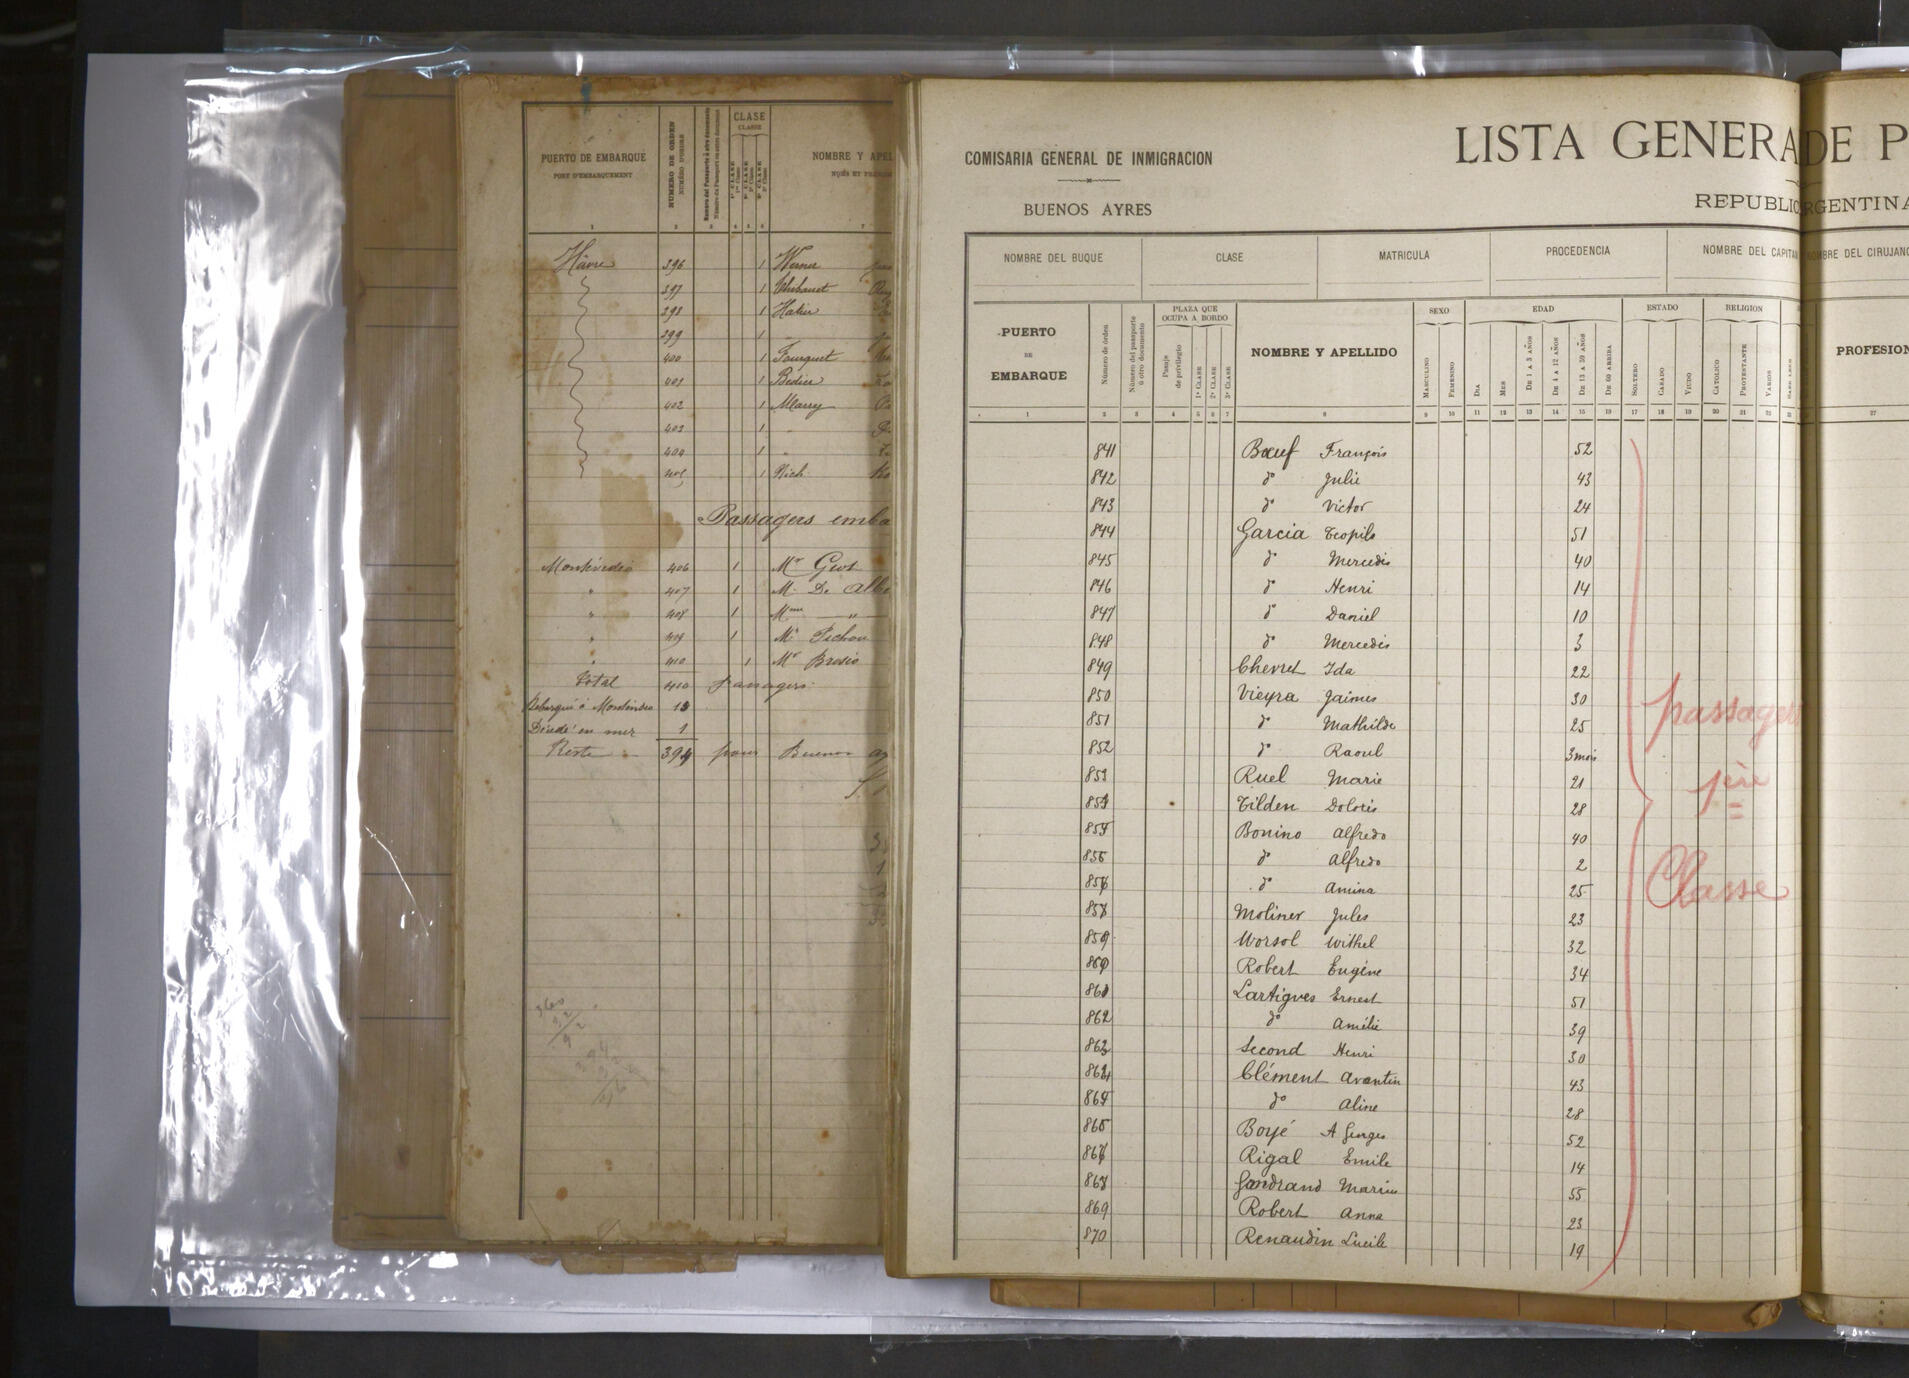 PUERTO DE EMBARQUE
PORT D'EMBARQUEMENT
NUMERO DE ORDEN
NUMÉRO D'ORDRE
CLASE
CLASSE
1ª CLASE
2ª CLASE
3ª CLASE
NOMBRE Y APEL
1 2 3 4 5 6 7
Hâvre 396 1 Werner
397 1 Thibaut
398 1
399 1 "
400 1 Fourquet
401 1 Bedier
402 1 Mlarry
403 1 "
404 1 "
405 1 Rich
Passagers emba
Montévidéo 406 1 Mr
" 407 1 M. De Albe
" 408 1 Mme "
" 409 1 Mr Pichon
" 410 1 Mr Brosio
Total 410 passagers
Débarqué à Montévideo
Décédé en mer 1
Reste 394 pour Buenos
COMISARIA GENERAL DE INMIGRACION
BUENOS AYRES
LISTA GENERA
DE P
REPUBLIC
RGENTINA
NOMBRE DEL BUQUE CLASE MATRICULA PROCEDENCIA NOMBRE DEL CAPITAN
MBRE DEL CIRUJANO
PUERTO DE EMBARQUE
Número de órden
Número del pasaporte ú otro documento
PLAZA QUE OCUPA A BORDO
Pasaje de privilegio
1ª CLASE
2ª CLASE
3ª CLASE
NOMBRE Y APELLIDO
SEXO
MASCULINO
FEMENINO
EDAD
DIA
MES
DE 1 A 3 AÑOS
DE 4 A 12 AÑOS
DE 13 A 59 AÑOS
DE 60 ARRIBA
ESTADO
SOLTERO
CASADO
VIUDO
RELIGION
CATOLICO
PROTESTANTE
VARIOS
PROFESION
1 2 3 4 5 6 7 8 9 10 11 12 13 14 15 16 17 18 19 20 21 22 27
841 Bœuf François 52
842 do Julie 43
843 do Victor 24
844 Garcia Teopilo 51
845 do Mercedis 40
846 do Henri 14
847 do Daniel 10
848 do Mercedès 3
849 Chevret Ida 22
850 Vieyra Jaimes 30
851 do Mathilde 25
852 do Raoul 3 mois
853 Ruel Marie 21
854 Tilden Dolorés 28
Bonino Alfredo 40
do Alfredo 2
do Amina 25
Moliner Jules 23
859 Worsol Withel 32
860 Robert Eugène 34
861 Lartigues Ernest 51
862 do Amélie 39
863 Second Henri 30
Clément Avantin 43
do Aline 28
Boyé A Georges 52
Rigal Emile 14
Gondrand Marius 55
869 Robert Anna 23
870 Renaudin Lucile 19
passagers
1ère
Classe